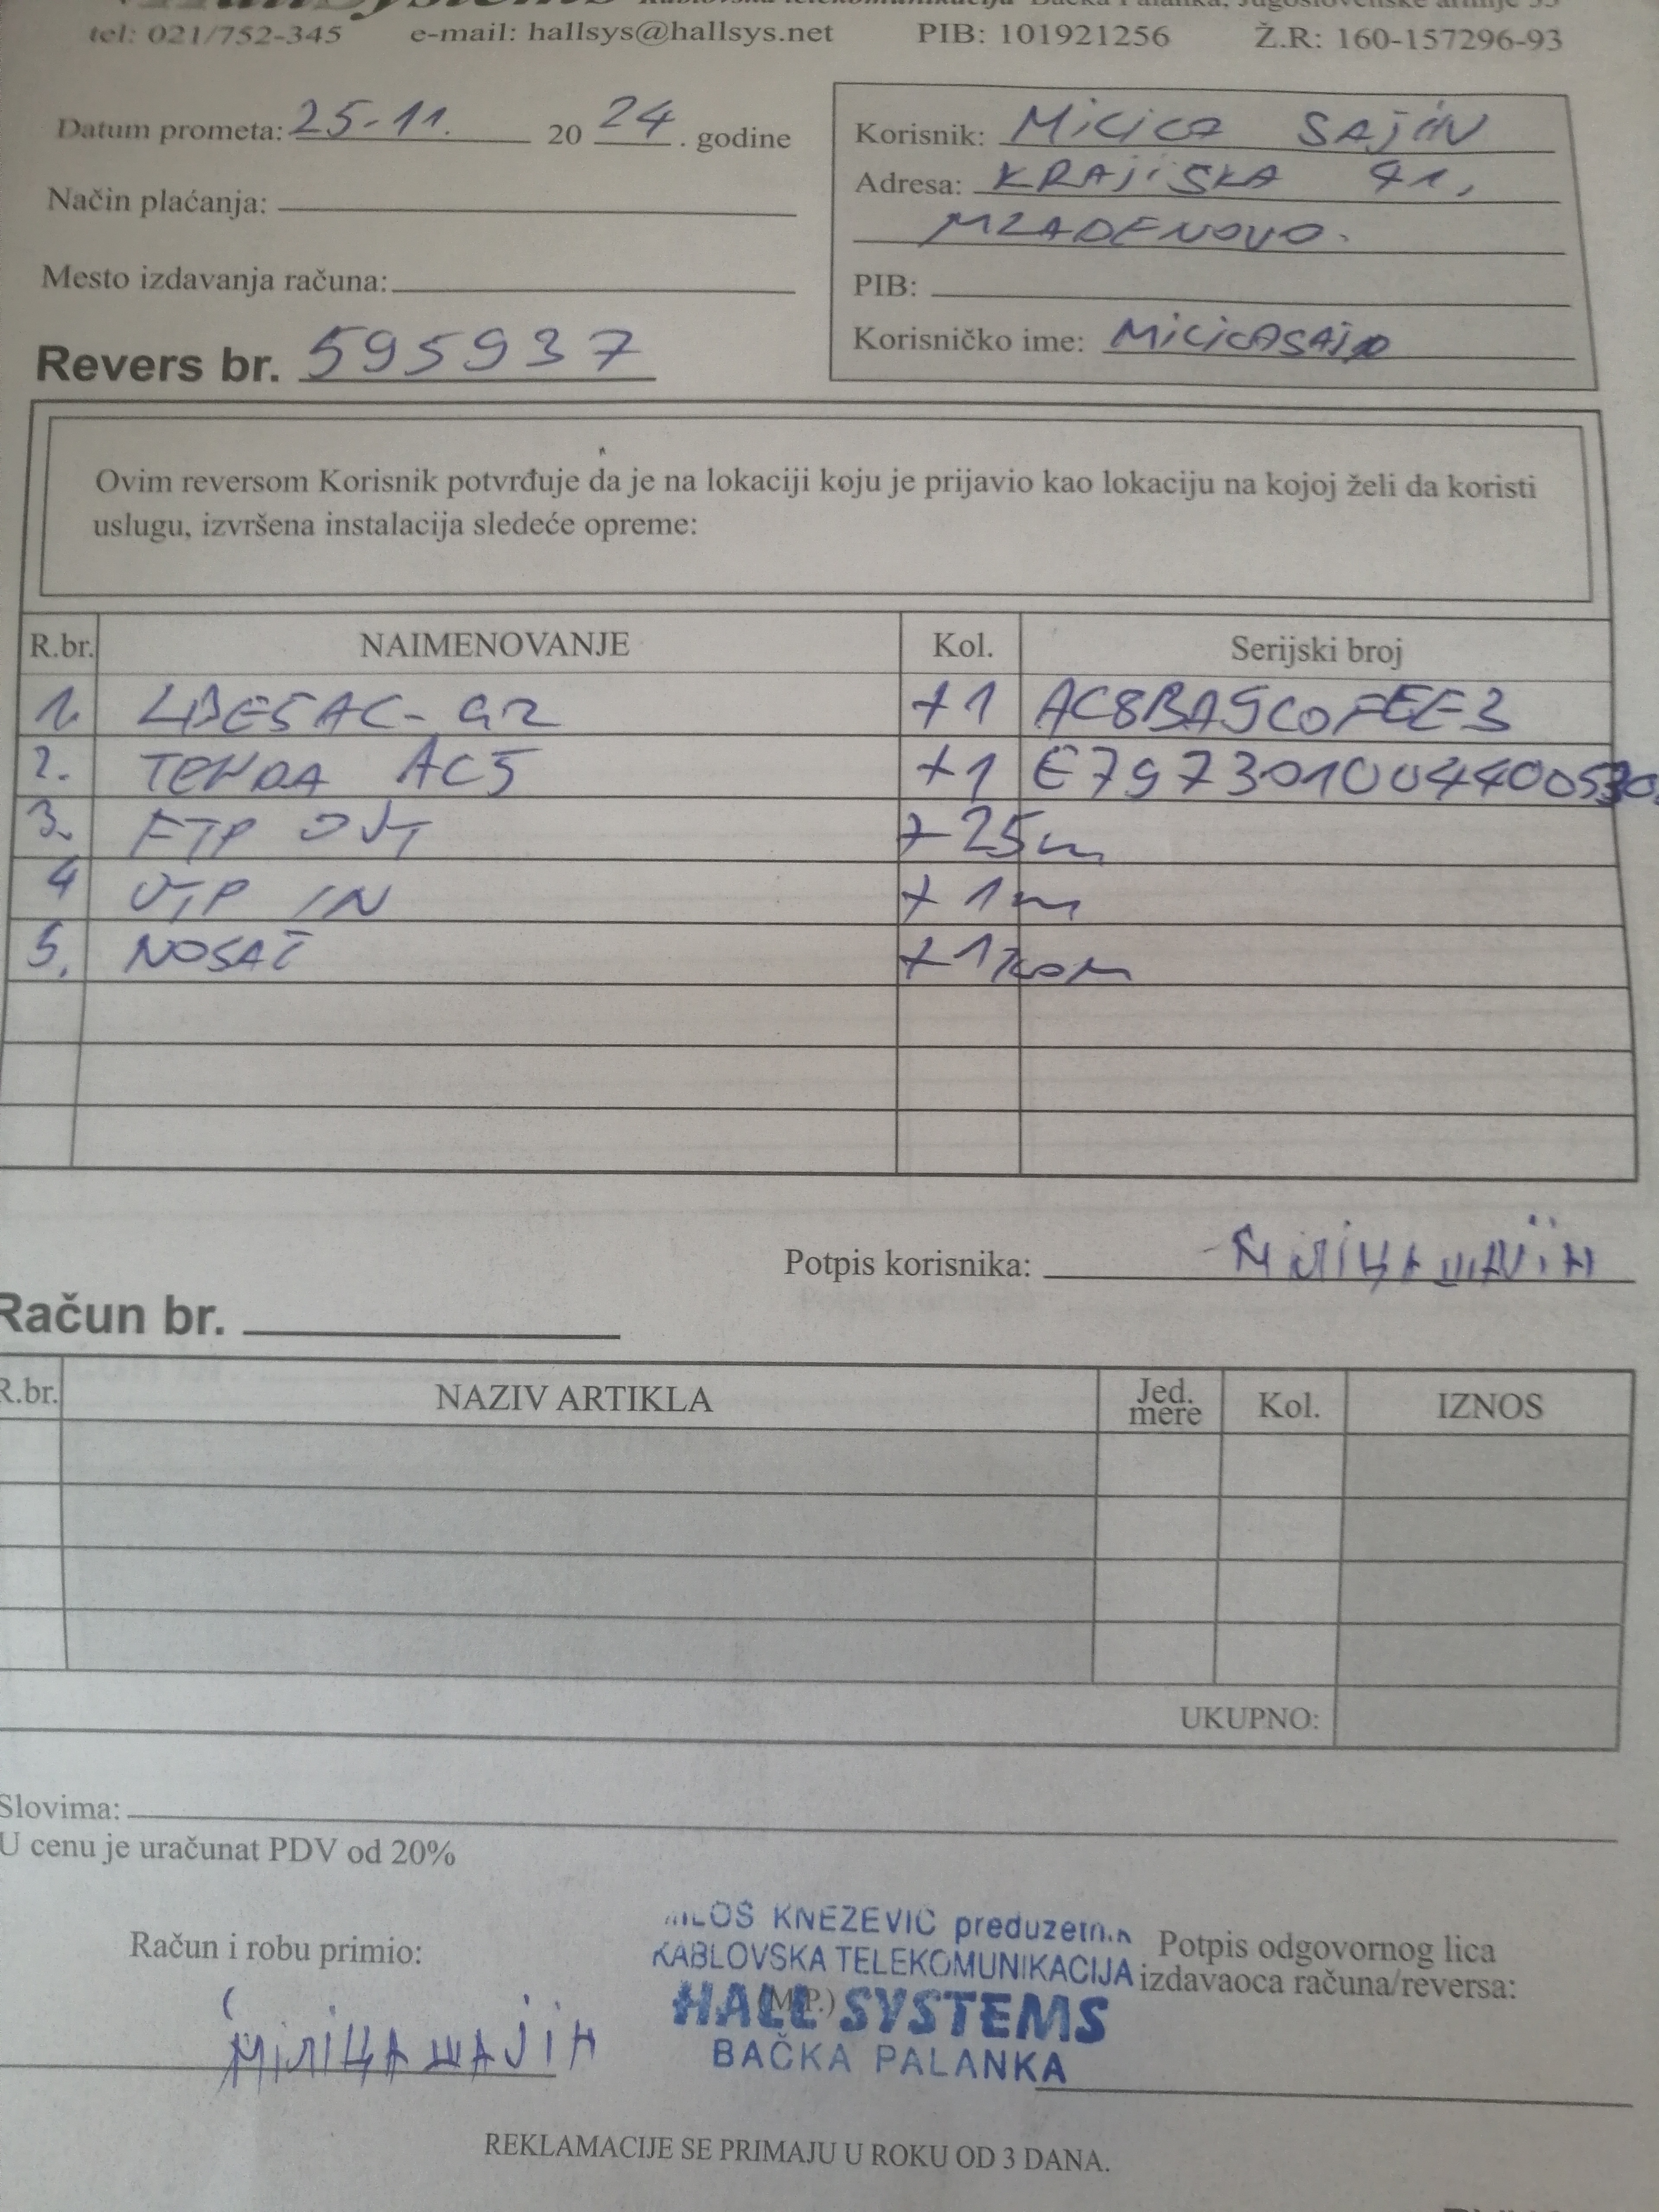 Hall Systems Kablovska telekomunikacija Bačka Palanka, Jugoslovenske armije 55
tel: 021/752-345 e-mail: hallsys@hallsys.net PIB: 101921256 Ž.R: 160-157296-93
Datum prometa: 25-11. 20 24 . godine
Način plaćanja:
Mesto izdavanja računa:
Revers br. 595937
Korisnik: MiLiCA SAJiN
Adresa: KRAJiŠKA 41,
MLADENOVO.
PIB:
Korisničko ime:
Ovim reversom Korisnik potvrđuje da je na lokaciji koju je prijavio kao lokaciju na kojoj želi da koristi
uslugu, izvršena instalacija sledeće opreme:
R.br. NAIMENOVANJE Kol. Serijski broj
1. LBE5AC-G2 +1 AC8BA9C0FEE3
2. TENDA AC5 +1
3. FTP OUT +25m
4 UTP IN +1m
5. NOSAČ +1kom
Potpis korisnika: МілІЦА ШАЈіН
Račun br.
R.br. NAZIV ARTIKLA Jed. mere Kol. IZNOS
UKUPNO:
Slovima:
U cenu je uračunat PDV od 20%
Račun i robu primio:
МілІЦА ШАЈіН
MILOŠ KNEŽEVIĆ preduzetnik
KABLOVSKA TELEKOMUNIKACIJA
(M.P.)
HALL SYSTEMS
BAČKA PALANKA
Potpis odgovornog lica
izdavaoca računa/reversa:
REKLAMACIJE SE PRIMAJU U ROKU OD 3 DANA.